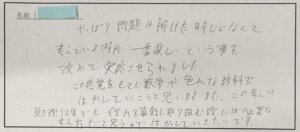 名前（　　　　）
やっぱり問題は解けた時じゃなくて
考えている時が一番楽しいという事を
改めて実感させられました。
この感覚をもとに数学や色んな教科で
活かしていこうと思います。また、この考えは
勉強以外でも何かで真剣に取り組む際には必要な
考え方だと思うので活かしていきたいです